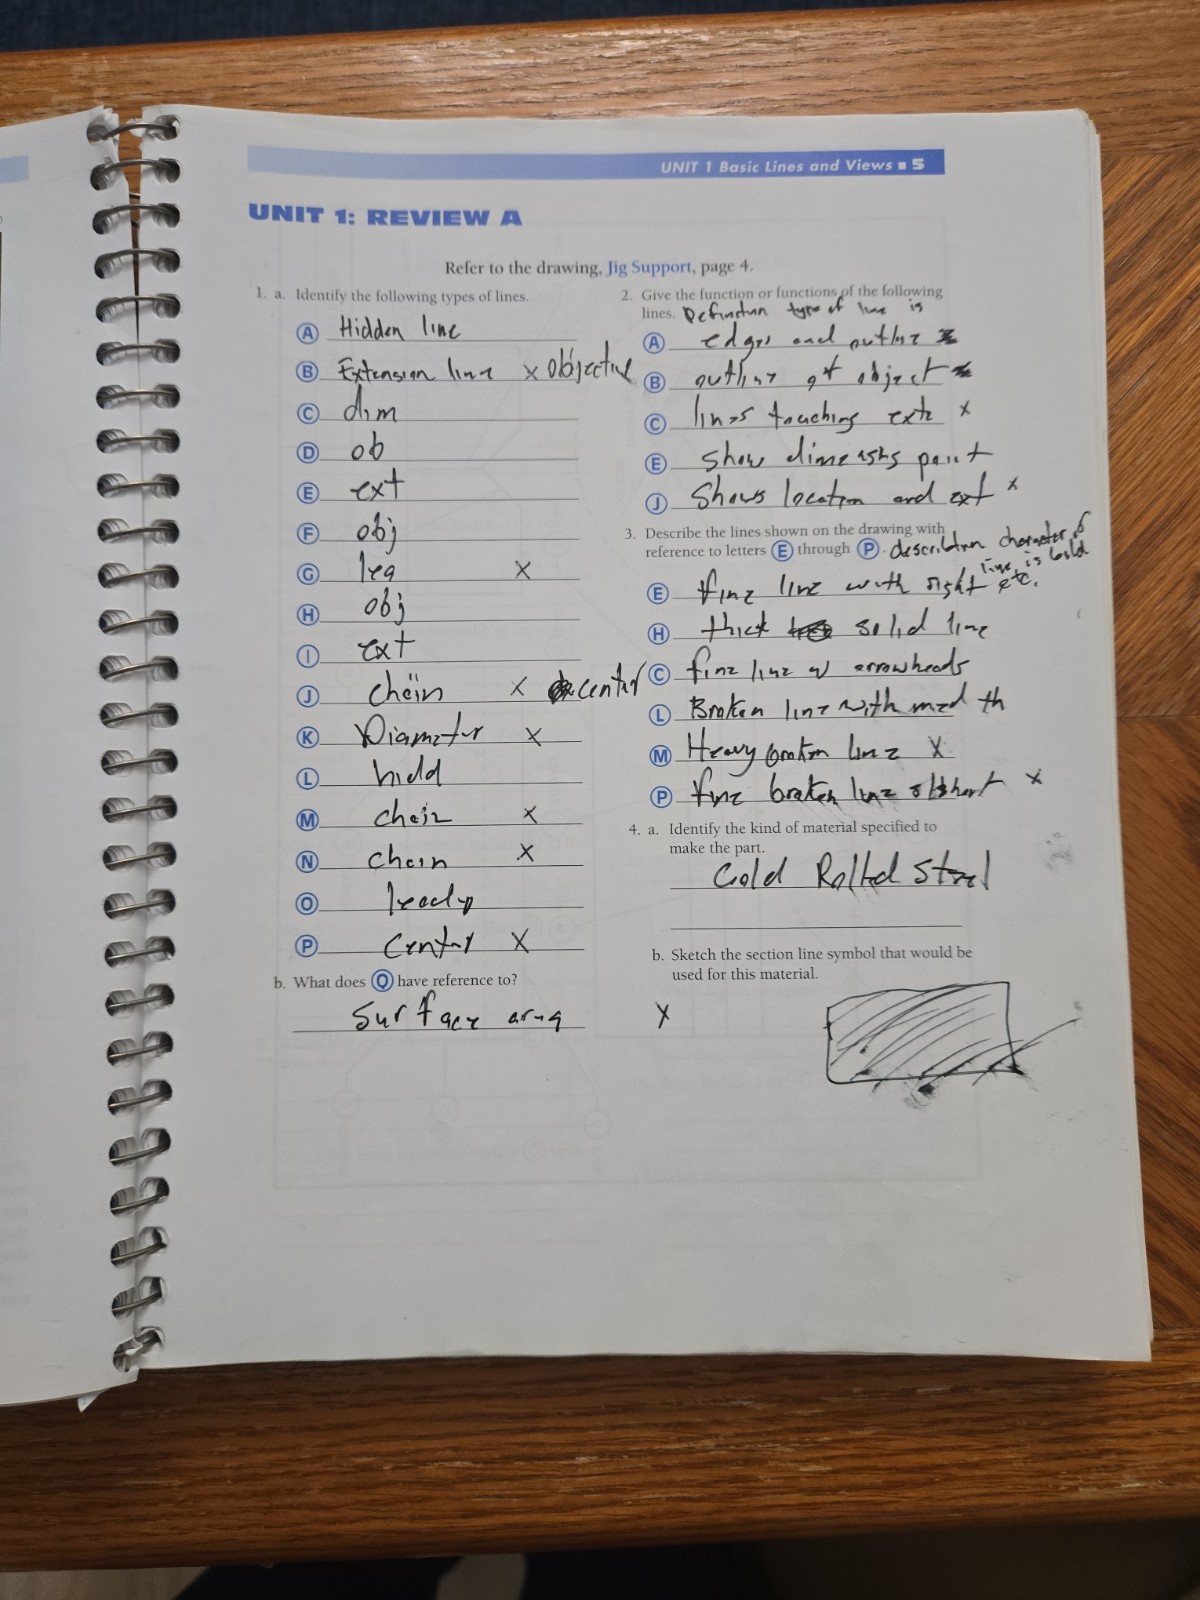 UNIT 1 Basic Lines and Views ■ 5
UNIT 1: REVIEW A
Refer to the drawing, Jig Support, page 4.
1. a. Identify the following types of lines.
A Hidden line
B Extension line x objective
C dim
D ob
E ext
F obj
G lea X
H obj
I ext
J chain X center
K Diameter X
L hidd
M chain X
N chain X
O leader
P Center X
b. What does Q have reference to?
Surface area X
2. Give the function or functions of the following
lines. Definition type of line is
A edges and outline
B outline of object
C lines touching ext x
E show dimensns point
J Shows location and ext x
3. Describe the lines shown on the drawing with
reference to letters E through P. character of
line is bold
E fine line with right etc.
H thick solid line
C fine line w arrowheads
L Broken line with med th
M Heavy broken line X
P fine broken line short x
4. a. Identify the kind of material specified to
make the part.
Cold Rolled Steel
b. Sketch the section line symbol that would be
used for this material.